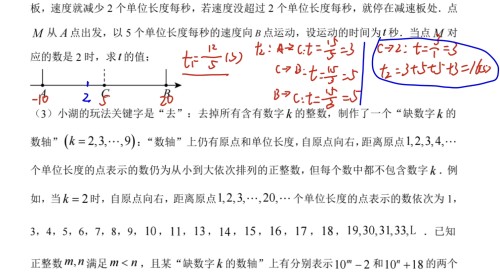 板,速度就减少 2 个单位长度每秒,若速度没超过 2 个单位长度每秒,就停在减速板处.点
M 从 A 点出发,以 5 个单位长度每秒的速度向 B 点运动,设运动的时间为 t 秒.当点 M 对
应的数是 2 时,求 t 的值;
t₁=12/5(s)
t₂: A→C: t=15/5=3
C→B: t=15/3=5
B→C: t=15/3=5
C→2: t=3/1=3
t₂=3+5+5+3=16(s)
A C B
-10 2 5 20
(3)小湖的玩法关键字是“去”:去掉所有含有数字 k 的整数,制作了一个“缺数字 k 的
数轴”(k=2,3,⋯,9);“数轴”上仍有原点和单位长度,自原点向右,距离原点1,2,3,4,⋯
个单位长度的点表示的数仍为从小到大依次排列的正整数,但每个数中都不包含数字 k.例
如,当 k=2 时,自原点向右,距离原点1,2,3,⋯,20,⋯个单位长度的点表示的数依次为 1,
3,4,5,6,7,8,9,10,11,13,14,15,16,17,18,19,30,31,33,L.已知
正整数 m,n 满足 m<n,且某“缺数字 k 的数轴”上有分别表示 10ᵐ−2 和 10ⁿ+18 的两个